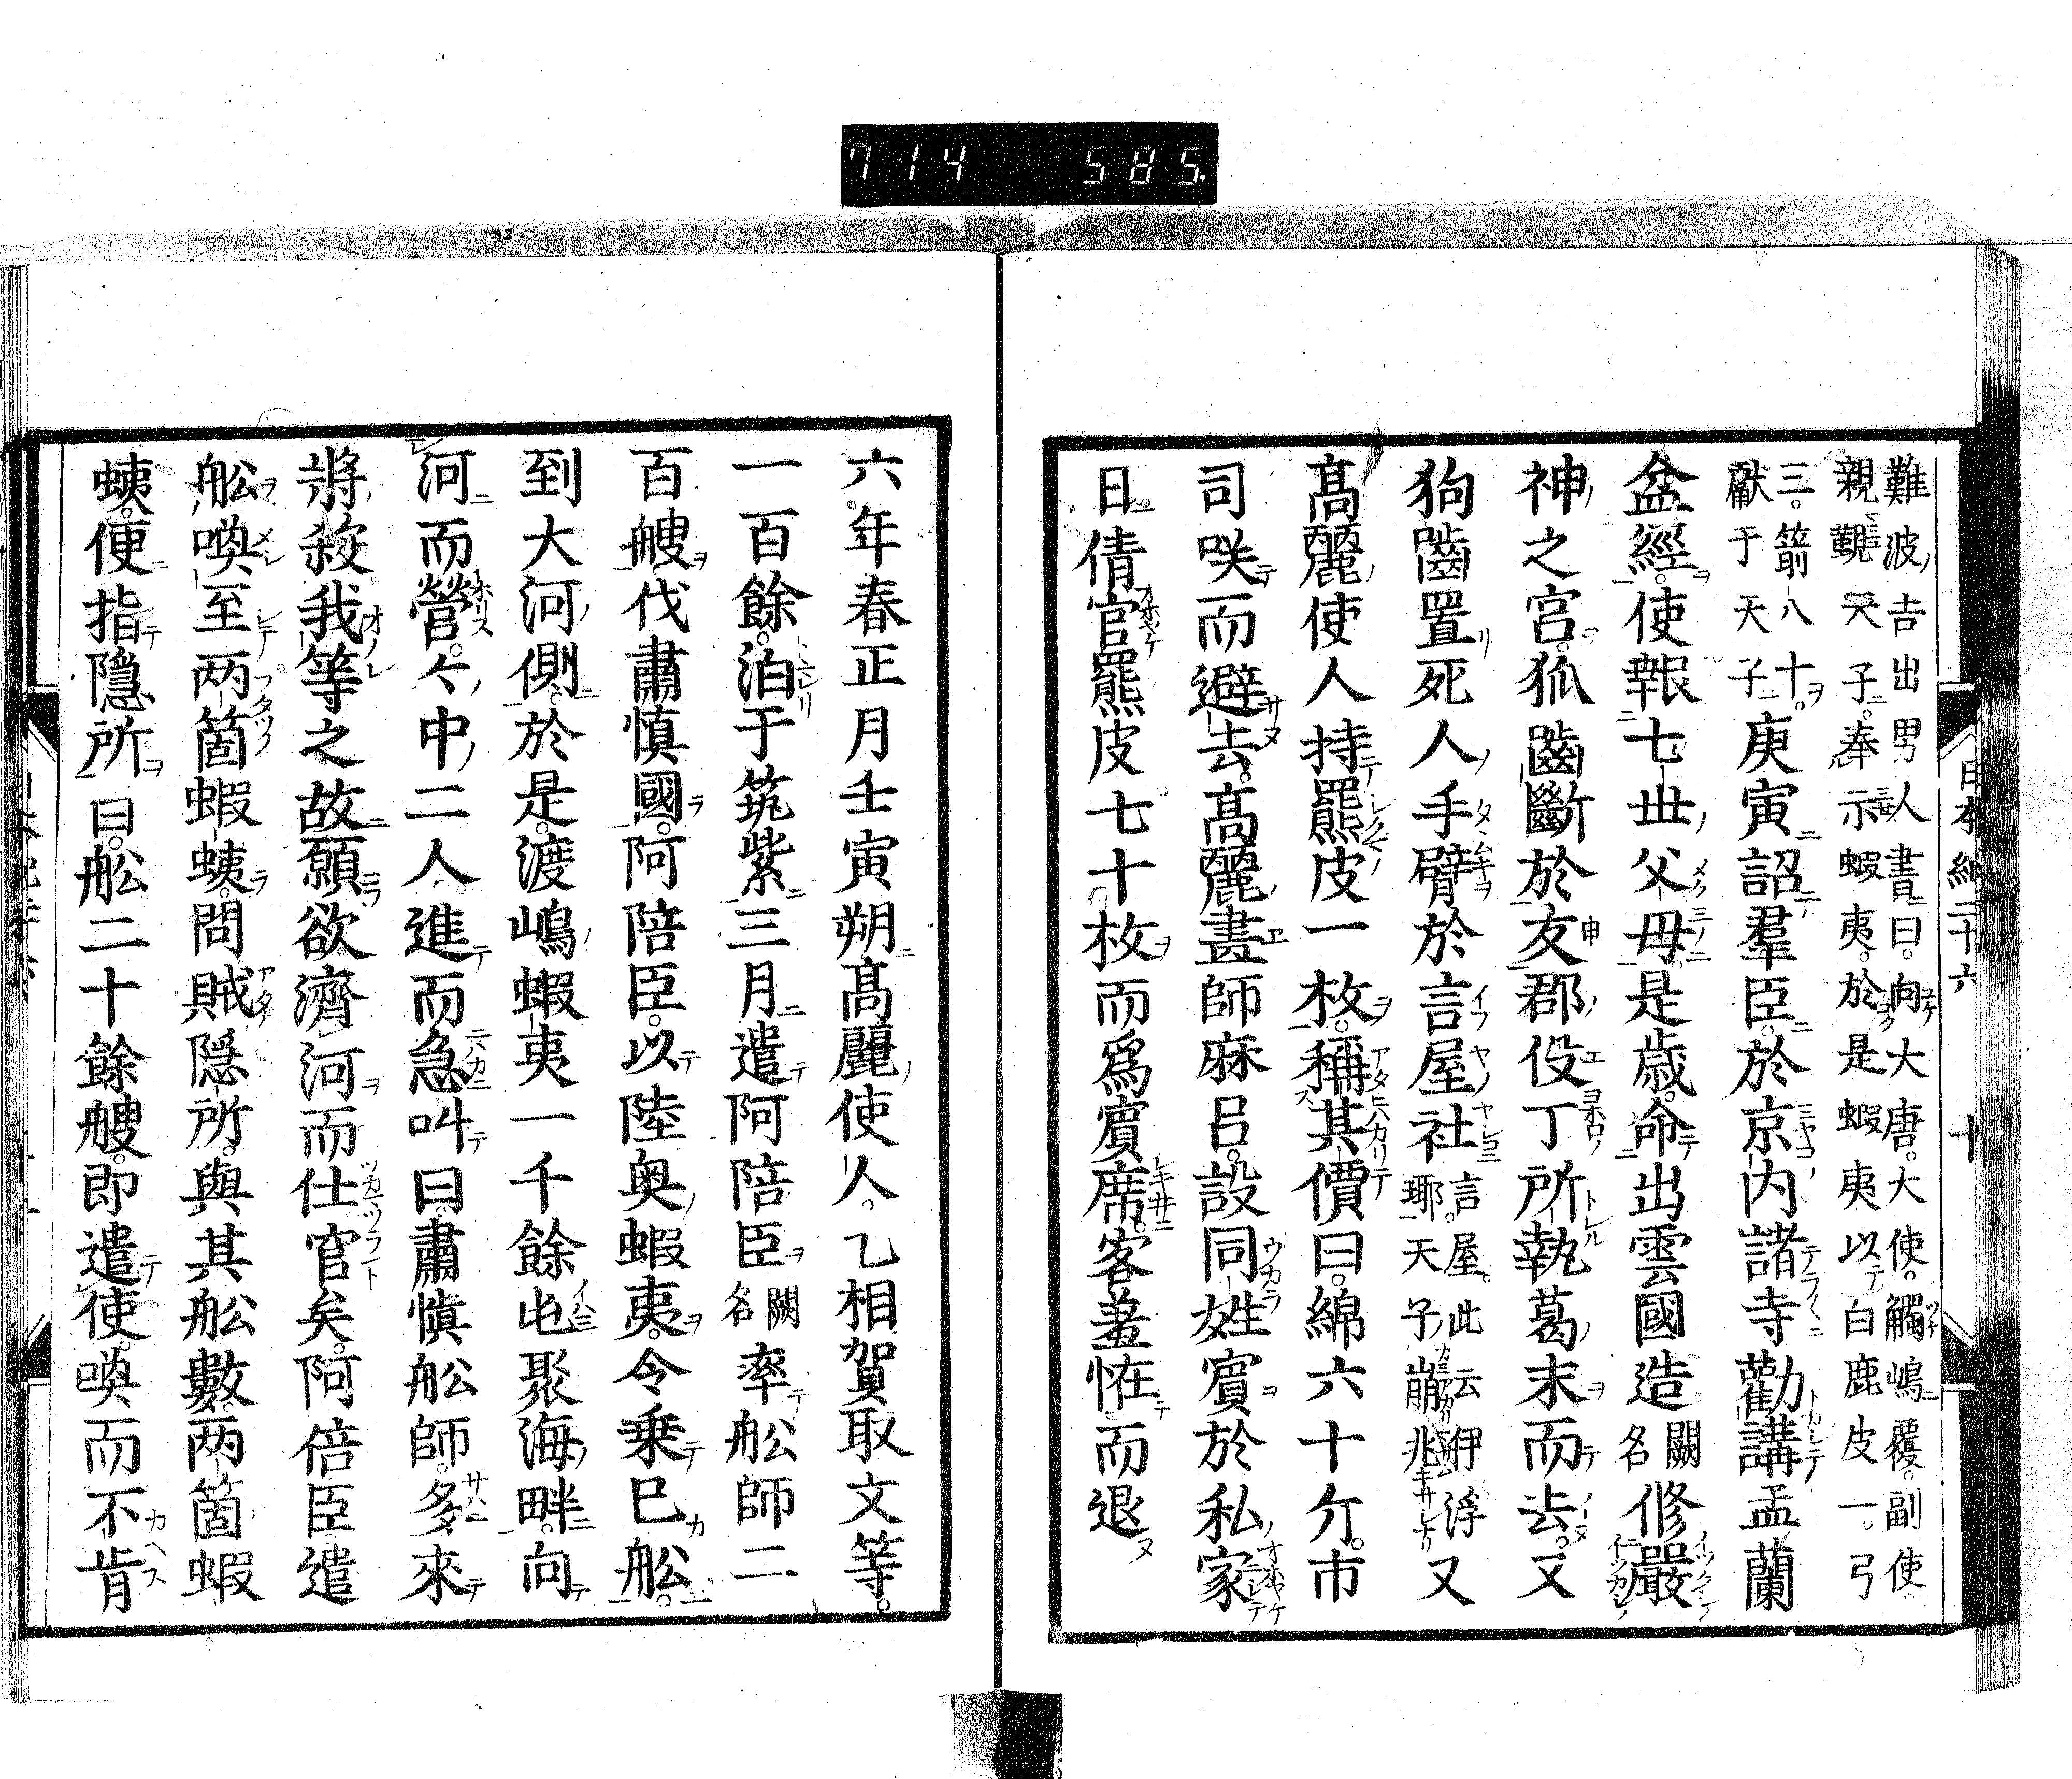 714 585
難波吉士男人書曰。向大唐。大使。觸嶋覆。副使
親覲天子。奉示蝦夷。於是蝦夷以白鹿皮一。弓
三。箭八十。
獻于天子
庚寅詔羣臣。於京内諸寺勸講盂蘭
盆經。使報七世父母是歳。命出雲國造
闕
名
修嚴
神之宮。狐齧斷於友郡役丁所執葛末而去。又
狗齧置死人手臂於言屋社
言屋。此云伊浮
瑘天子崩兆
又
髙麗使人持羆皮一枚。稱其價曰。綿六十斤。市
司咲而避去。髙麗畫師麻呂。設同姓賓於私家
日。倩官羆皮七十枚而爲賓席。客羞恠而退
日本紀二十六 十
六年春正月壬寅朔髙麗使人。乙相賀取文等。
一百餘。泊于筑紫三月遣阿陪臣
闕
名
率舩師二
百艘伐肅慎國。阿陪臣。以陸奥蝦夷。令乗已舩。
到大河側。於是。渡嶋蝦夷一千餘屯聚海畔。向
河而營。々中二人進而急叫曰。肅慎舩師。多來
將殺我等之故願欲濟河而仕官矣。阿倍臣遣
舩喚至两箇蝦蛦。問賊隠所。與其舩數。两箇蝦
蛦。便指隠所曰。舩二十餘艘。即遣使。喚而不肯